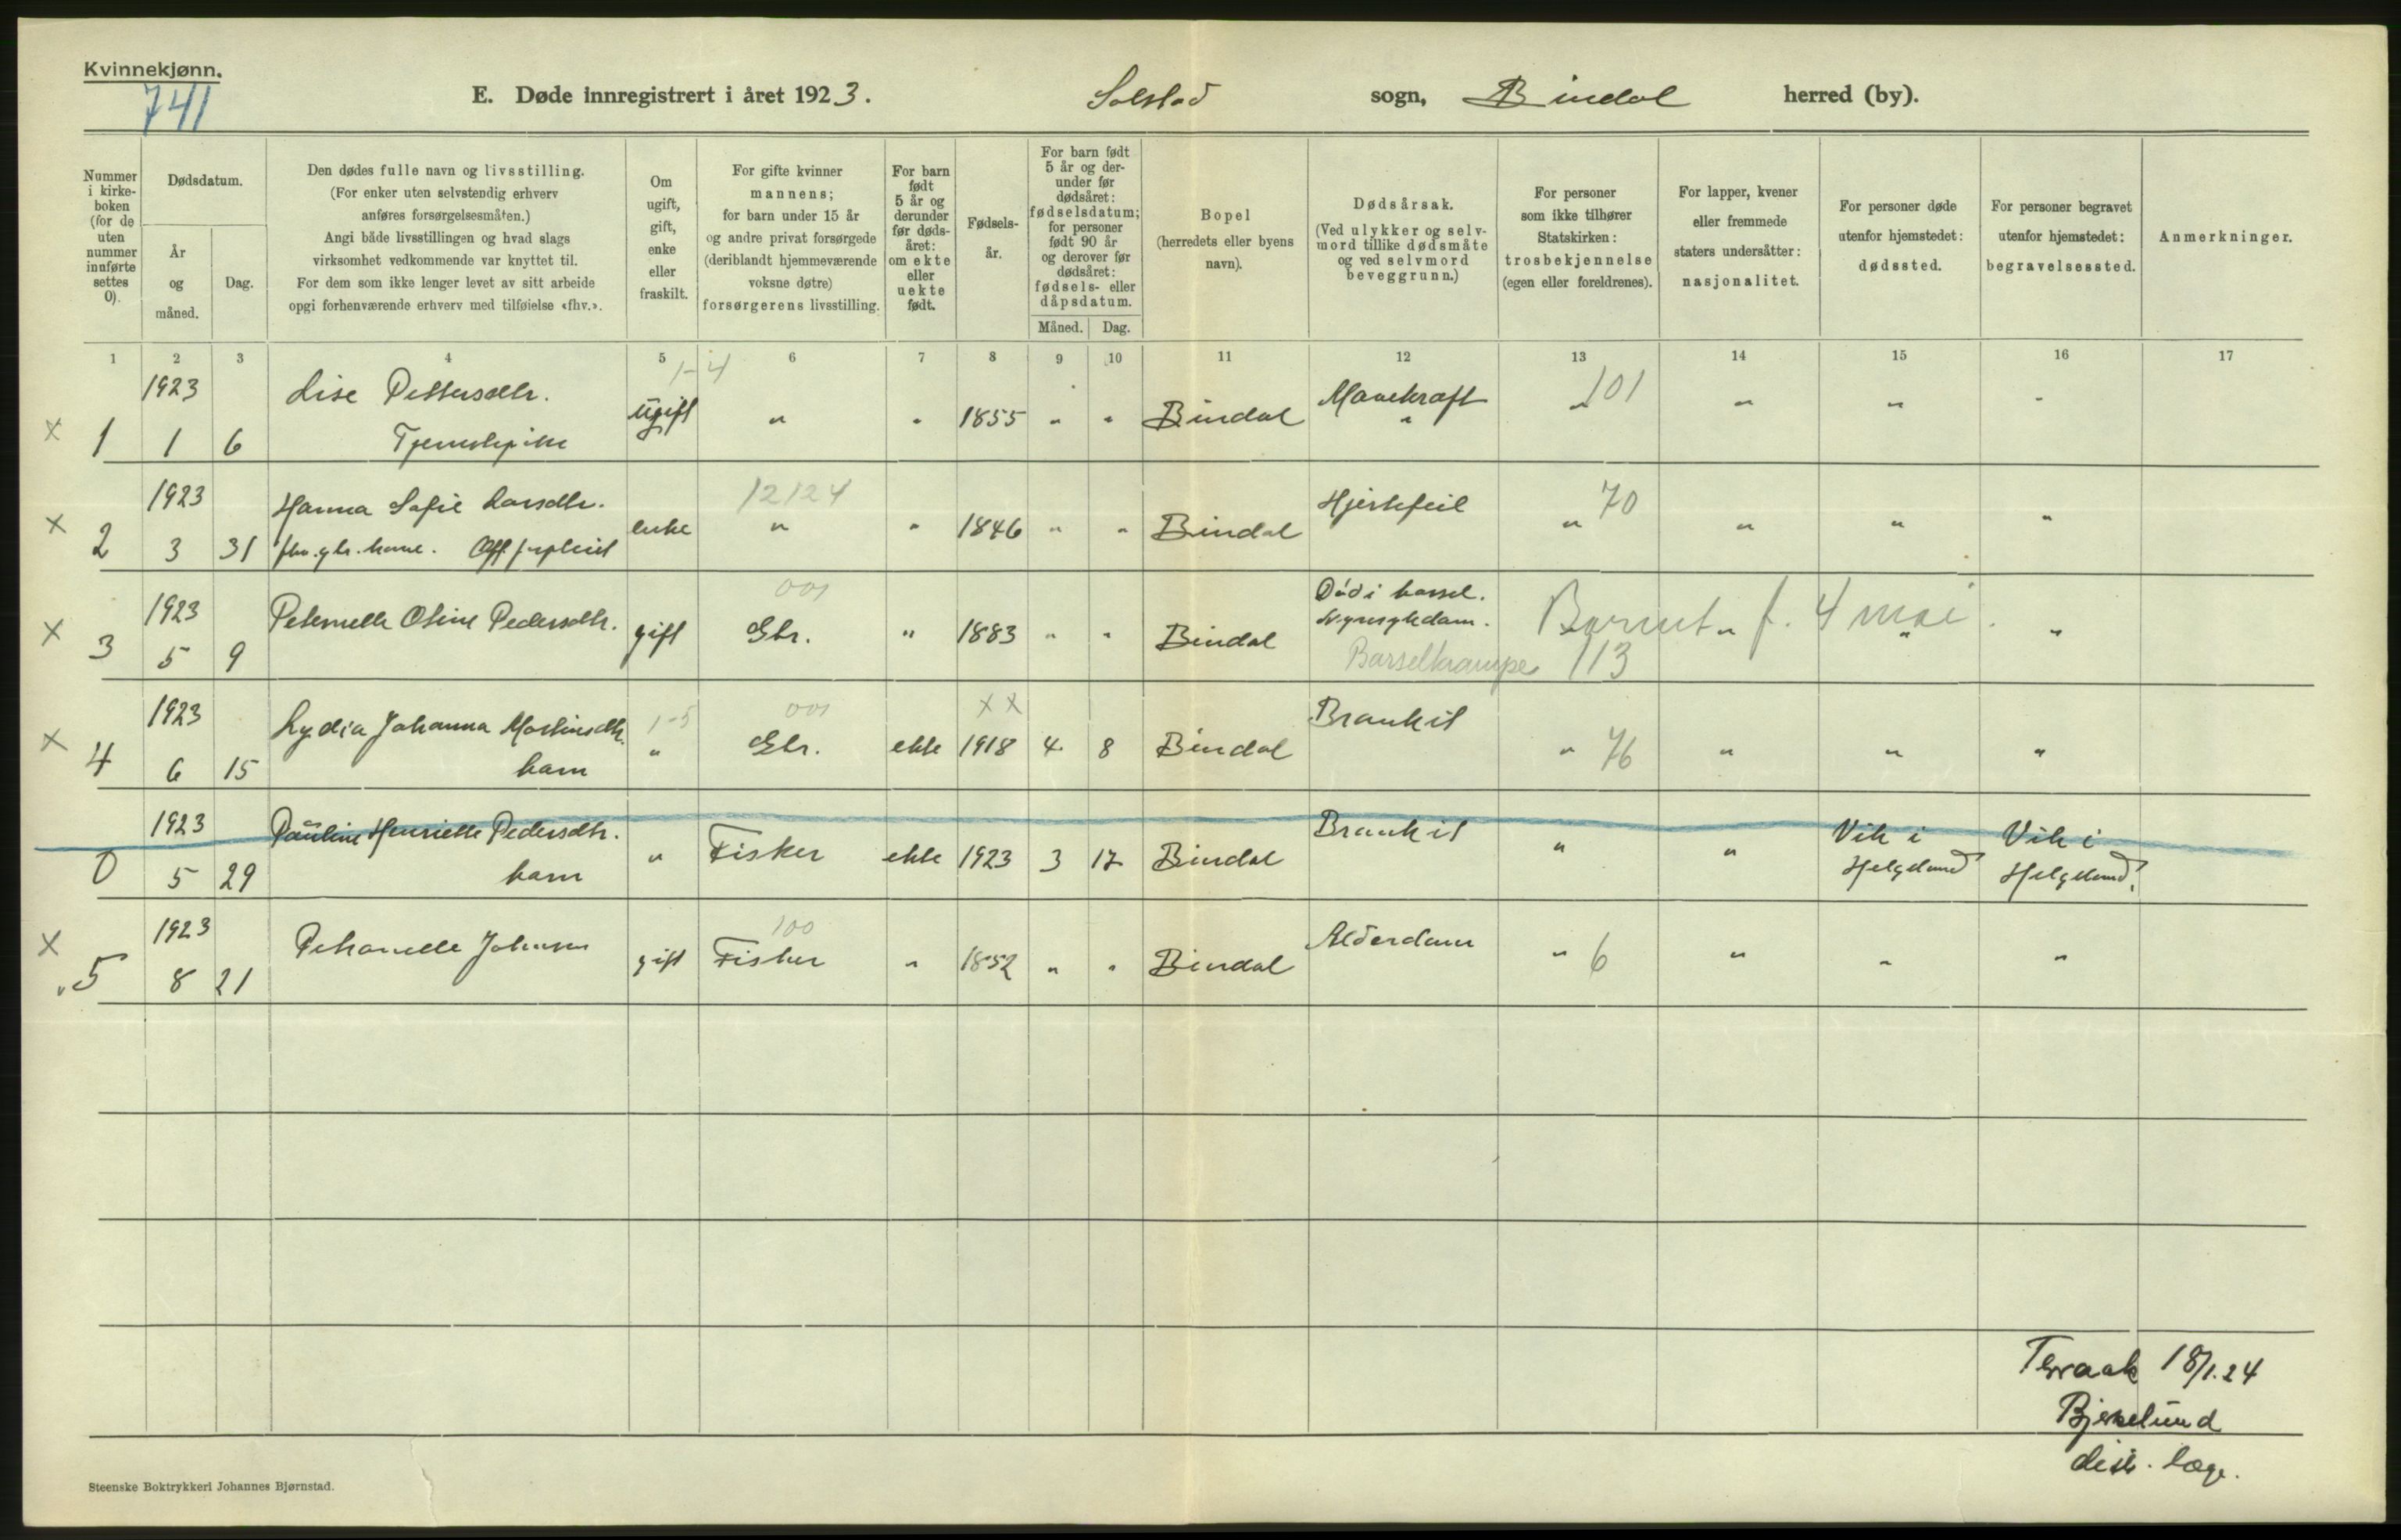 Kvinnekjønn.
741
E. Døde innregistrert i året 1923.
Solstad sogn, Bindal herred (by).
Nummer i kirke-boken (for de uten nummer innførte settes 0).
Dødsdatum.
År og måned.
Dag.
Den dødes fulle navn og livsstilling.
(For enker uten selvstendig erhverv
anføres forsørgelsesmåten.)
Angi både livsstillingen og hvad slags
virksomhet vedkommende var knyttet til.
For dem som ikke lenger levet av sitt arbeide
opgi forhenværende erhverv med tilføielse «fhv.».
Om
ugift,
gift,
enke
eller
fraskilt.
For gifte kvinner
mannens;
for barn under 15 år
og andre privat forsørgede
(deriblandt hjemmeværende
voksne døtre)
forsørgerens livsstilling.
For barn
født
5 år og
derunder
før døds-
året:
om ekte
eller
uekte
født.
Fødsels-
år.
For barn født
5 år og der-
under før
dødsåret:
fødselsdatum;
for personer
født 90 år
og derover før
dødsåret:
fødsels- eller
dåpsdatum.
Måned. Dag.
Bopel
(herredets eller byens
navn).
Dødsårsak.
(Ved ulykker og selv-
mord tillike dødsmåte
og ved selvmord
beveggrunn.)
For personer
som ikke tilhører
Statskirken:
trosbekjennelse
(egen eller foreldrenes).
For lapper, kvener
eller fremmede
staters undersåtter:
nasjonalitet.
For personer døde
utenfor hjemstedet:
dødssted.
For personer begravet
utenfor hjemstedet:
begravelsessted.
Anmerkninger.
1 2 3 4 5 6 7 8 9 10 11 12 13 14 15 16 17
1-4
1923 Lise Pettersdtr. ugift " " 1855 " " Bindal Mavekraft " 101 " " "
x 1 1 6 Tjenestepike "
1923 Hanna Sofie Larsdtr. enke 12124 " " 1846 " " Bindal Hjertefeil " 70 " " "
x 2 3 31 fhv. gbr. kone.
001
1923 Peternelle Oline Pedersdtr. gift Gbr. " 1883 " " Bindal Død i barsel.
x 3 5 9 Nyresykdom. Barnet f. 4 mai. " " "
Barselkrampe 113
1923 Lydia Johanna Martinsdtr. 1-5 001 x x
x 4 6 15 barn " Gbr. ekte 1918 4 8 Bindal Brankit " 76 " " "
1923 Pauline Henriette Pedersdtr. Brankit Vik i Vik i
0 5 29 barn " Fisker ekte 1923 3 17 Bindal " " Helgeland Helgeland.
1923 100
x 5 8 21 gift Fisker " 1852 " " Bindal Alderdom " 6 " " "
Terraak 18/1.24
Bjerkelund
distr. læge.
Steenske Boktrykkeri Johannes Bjørnstad.